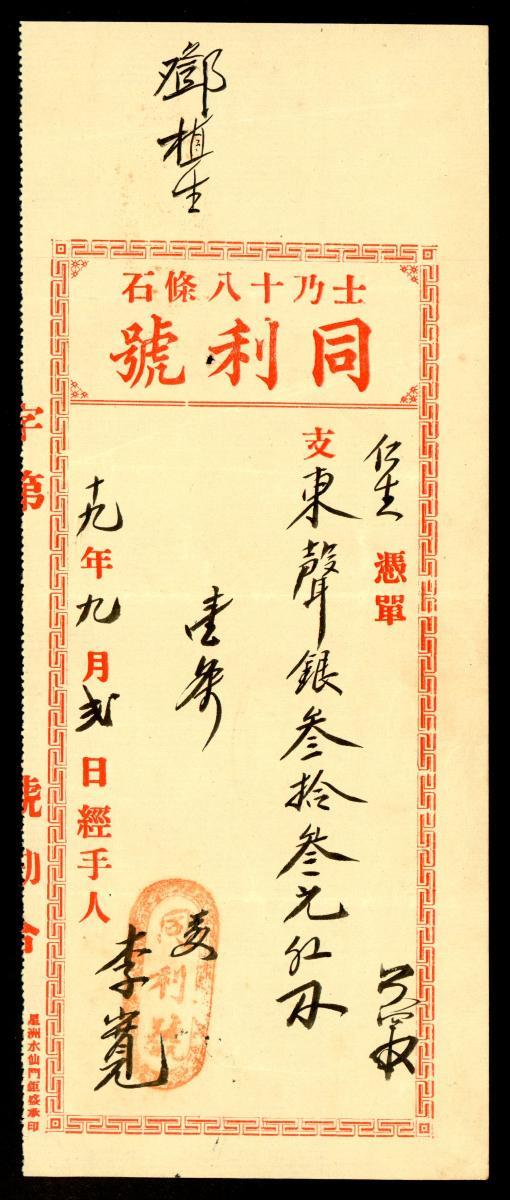 鄧植生
士乃十八條石
同利號
仁生 憑單
支東聲銀叁拾叁元
壹
十九年九月弍日經手人 李寬
同利號
字第 號勘合
星洲水仙門鉅盛承印